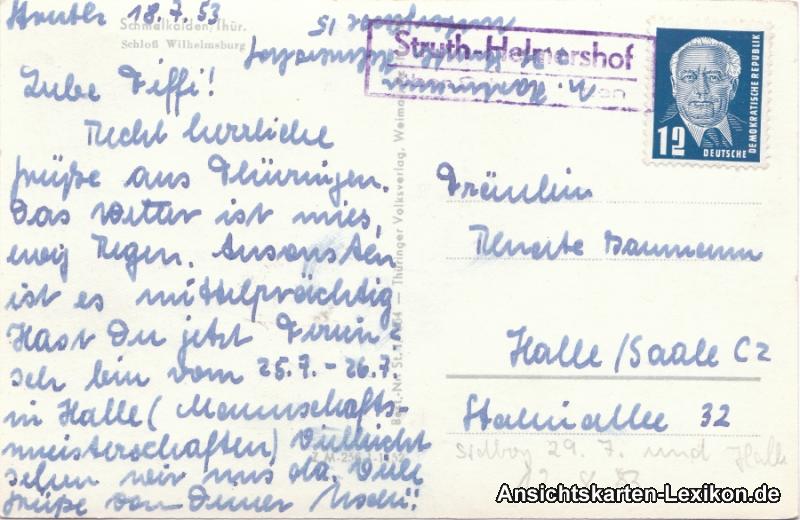 Struth 18.7.53
Schmalkalden, Thür.
Schloß Wilhelmsburg
Liebe Fiffi!
Recht herzliche
Grüße aus Thüringen.
Das Wetter ist mies,
ewig Regen. Ansonsten
ist es mittelprächtig
Hast Du jetzt Ferien?
Ich bin vom 25.7. - 26.7.
in Halle (Mannschafts-
meisterschaften) Vielleicht
sehen wir uns da. Viele
Grüße von Deiner
Thüringer Volksverlag, Weimar
Struth-Helmershof
12
DEUTSCHE
DEMOKRATISCHE REPUBLIK
Fräulein
Renate Baumann
Halle/Saale C2
Stalinallee 32
29. 7. und Halle
Ansichtskarten-Lexikon.de